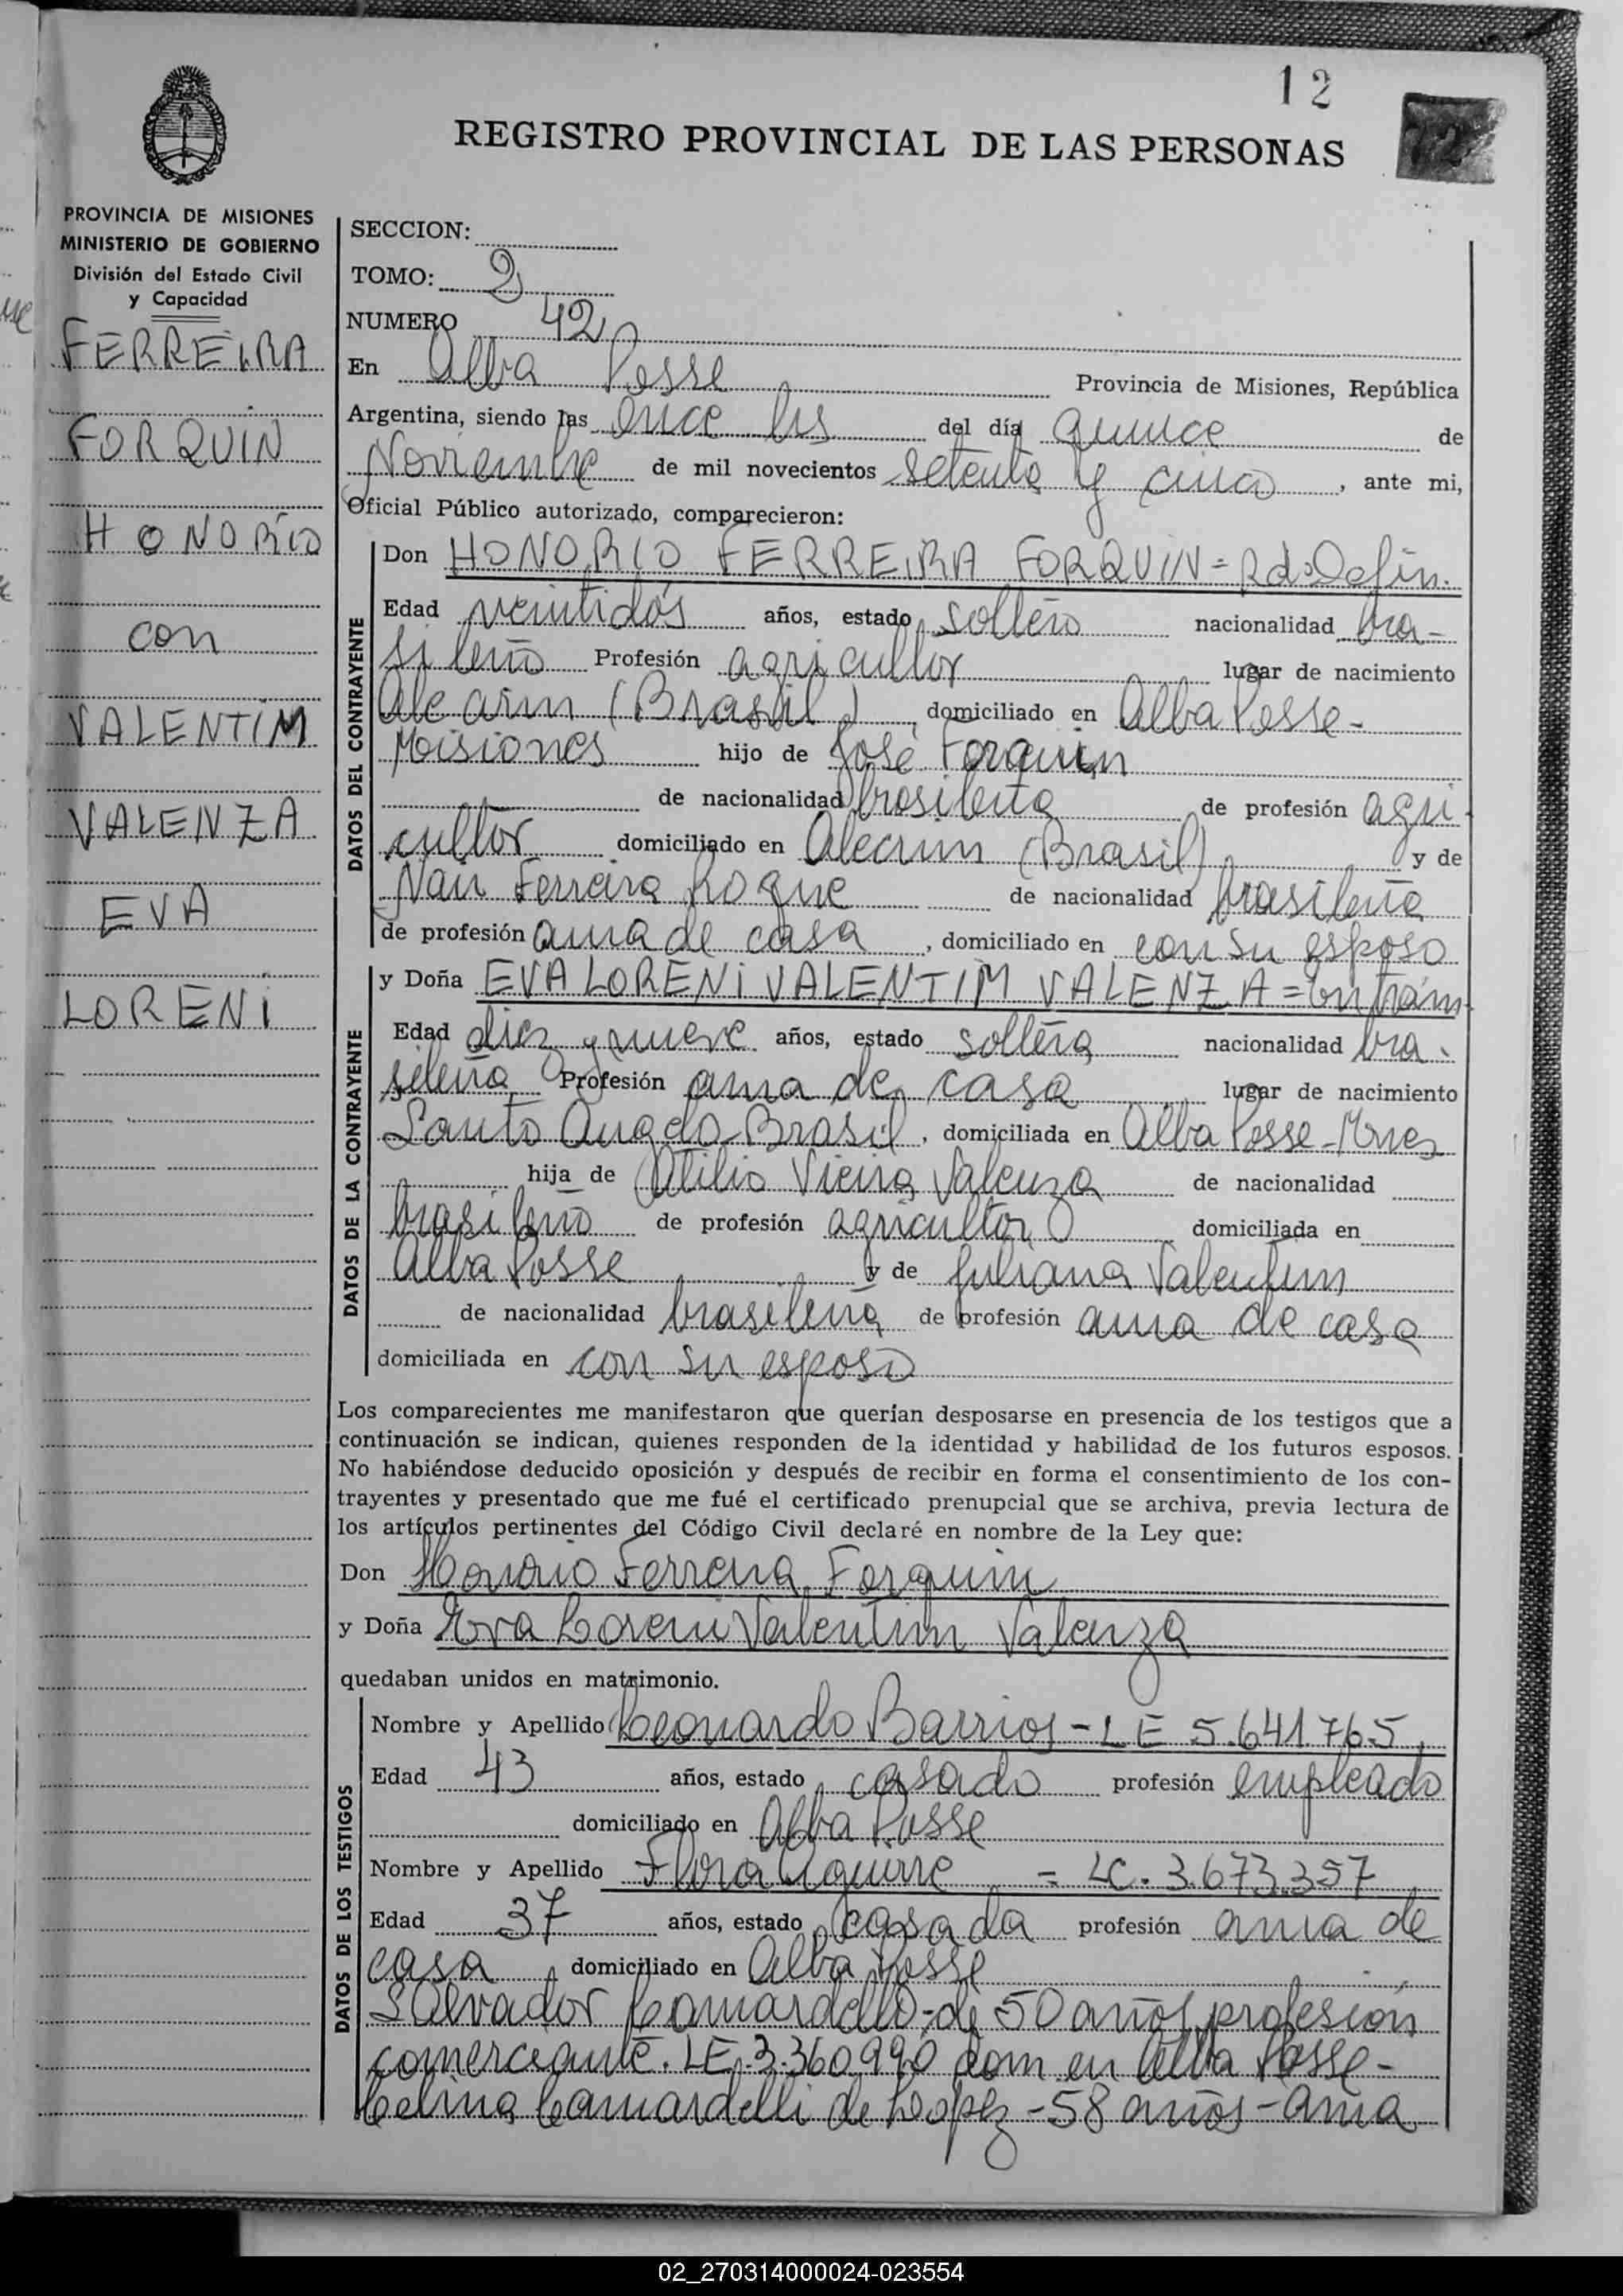 12
REGISTRO PROVINCIAL DE LAS PERSONAS
PROVINCIA DE MISIONES
MINISTERIO DE GOBIERNO
División del Estado Civil
y Capacidad
FERREIRA
FORQUIN
HONORIO
con
VALENTIM
VALENZA
EVA
LORENI
SECCION:
TOMO: 2
NUMERO 42
En Alba Posse Provincia de Misiones, República
Argentina, siendo las once hs del día quince de
Noviembre de mil novecientos setenta y cinco, ante mi,
Oficial Público autorizado, comparecieron:
DATOS DEL CONTRAYENTE
Don HONORIO FERREIRA FORQUIN =
Edad veintidós años, estado soltero nacionalidad bra-
sileño Profesión agricultor lugar de nacimiento
Alecrin (Brasil), domiciliado en Alba Posse-
Misiones hijo de José Forquin
de nacionalidad brasileña de profesión agri
cultor domiciliado en Alecrim (Brasil) y de
Nair Ferreira Roque de nacionalidad brasileña
de profesión ama de casa, domiciliado en con su esposo
DATOS DE LA CONTRAYENTE
y Doña EVA LORENI VALENTIM VALENZA = en trám.
Edad diez y nueve años, estado soltera nacionalidad bra-
sileña Profesión ama de casa lugar de nacimiento
Santo Angelo-Brasil, domiciliada en Alba Posse-Mnes
hija de Otilio Vieira Valenza de nacionalidad
brasileño de profesión agricultor domiciliada en
Alba Posse y de Juliana Valentim
de nacionalidad brasileña de profesión ama de casa
domiciliada en con su esposo
Los comparecientes me manifestaron que querían desposarse en presencia de los testigos que a
continuación se indican, quienes responden de la identidad y habilidad de los futuros esposos.
No habiéndose deducido oposición y después de recibir en forma el consentimiento de los con-
trayentes y presentado que me fué el certificado prenupcial que se archiva, previa lectura de
los artículos pertinentes del Código Civil declaré en nombre de la Ley que:
Don Honorio Ferreira Forquin
y Doña Eva Loreni Valentim Valenza
quedaban unidos en matrimonio.
DATOS DE LOS TESTIGOS
Nombre y Apellido Leonardo Barrios - LE 5.641.765
Edad 43 años, estado casado profesión empleado
domiciliado en Alba Posse
Nombre y Apellido Flora Aguirre = LC. 3.673.357
Edad 37 años, estado casada profesión ama de
casa domiciliado en Alba Posse
Salvador Camardelli-de 50 años, profesion
comerciante. LE.3.360.990 dom en Alba Posse-
Celina Camardelli de Lopez - 58 años - ama
02_270314000024-023554